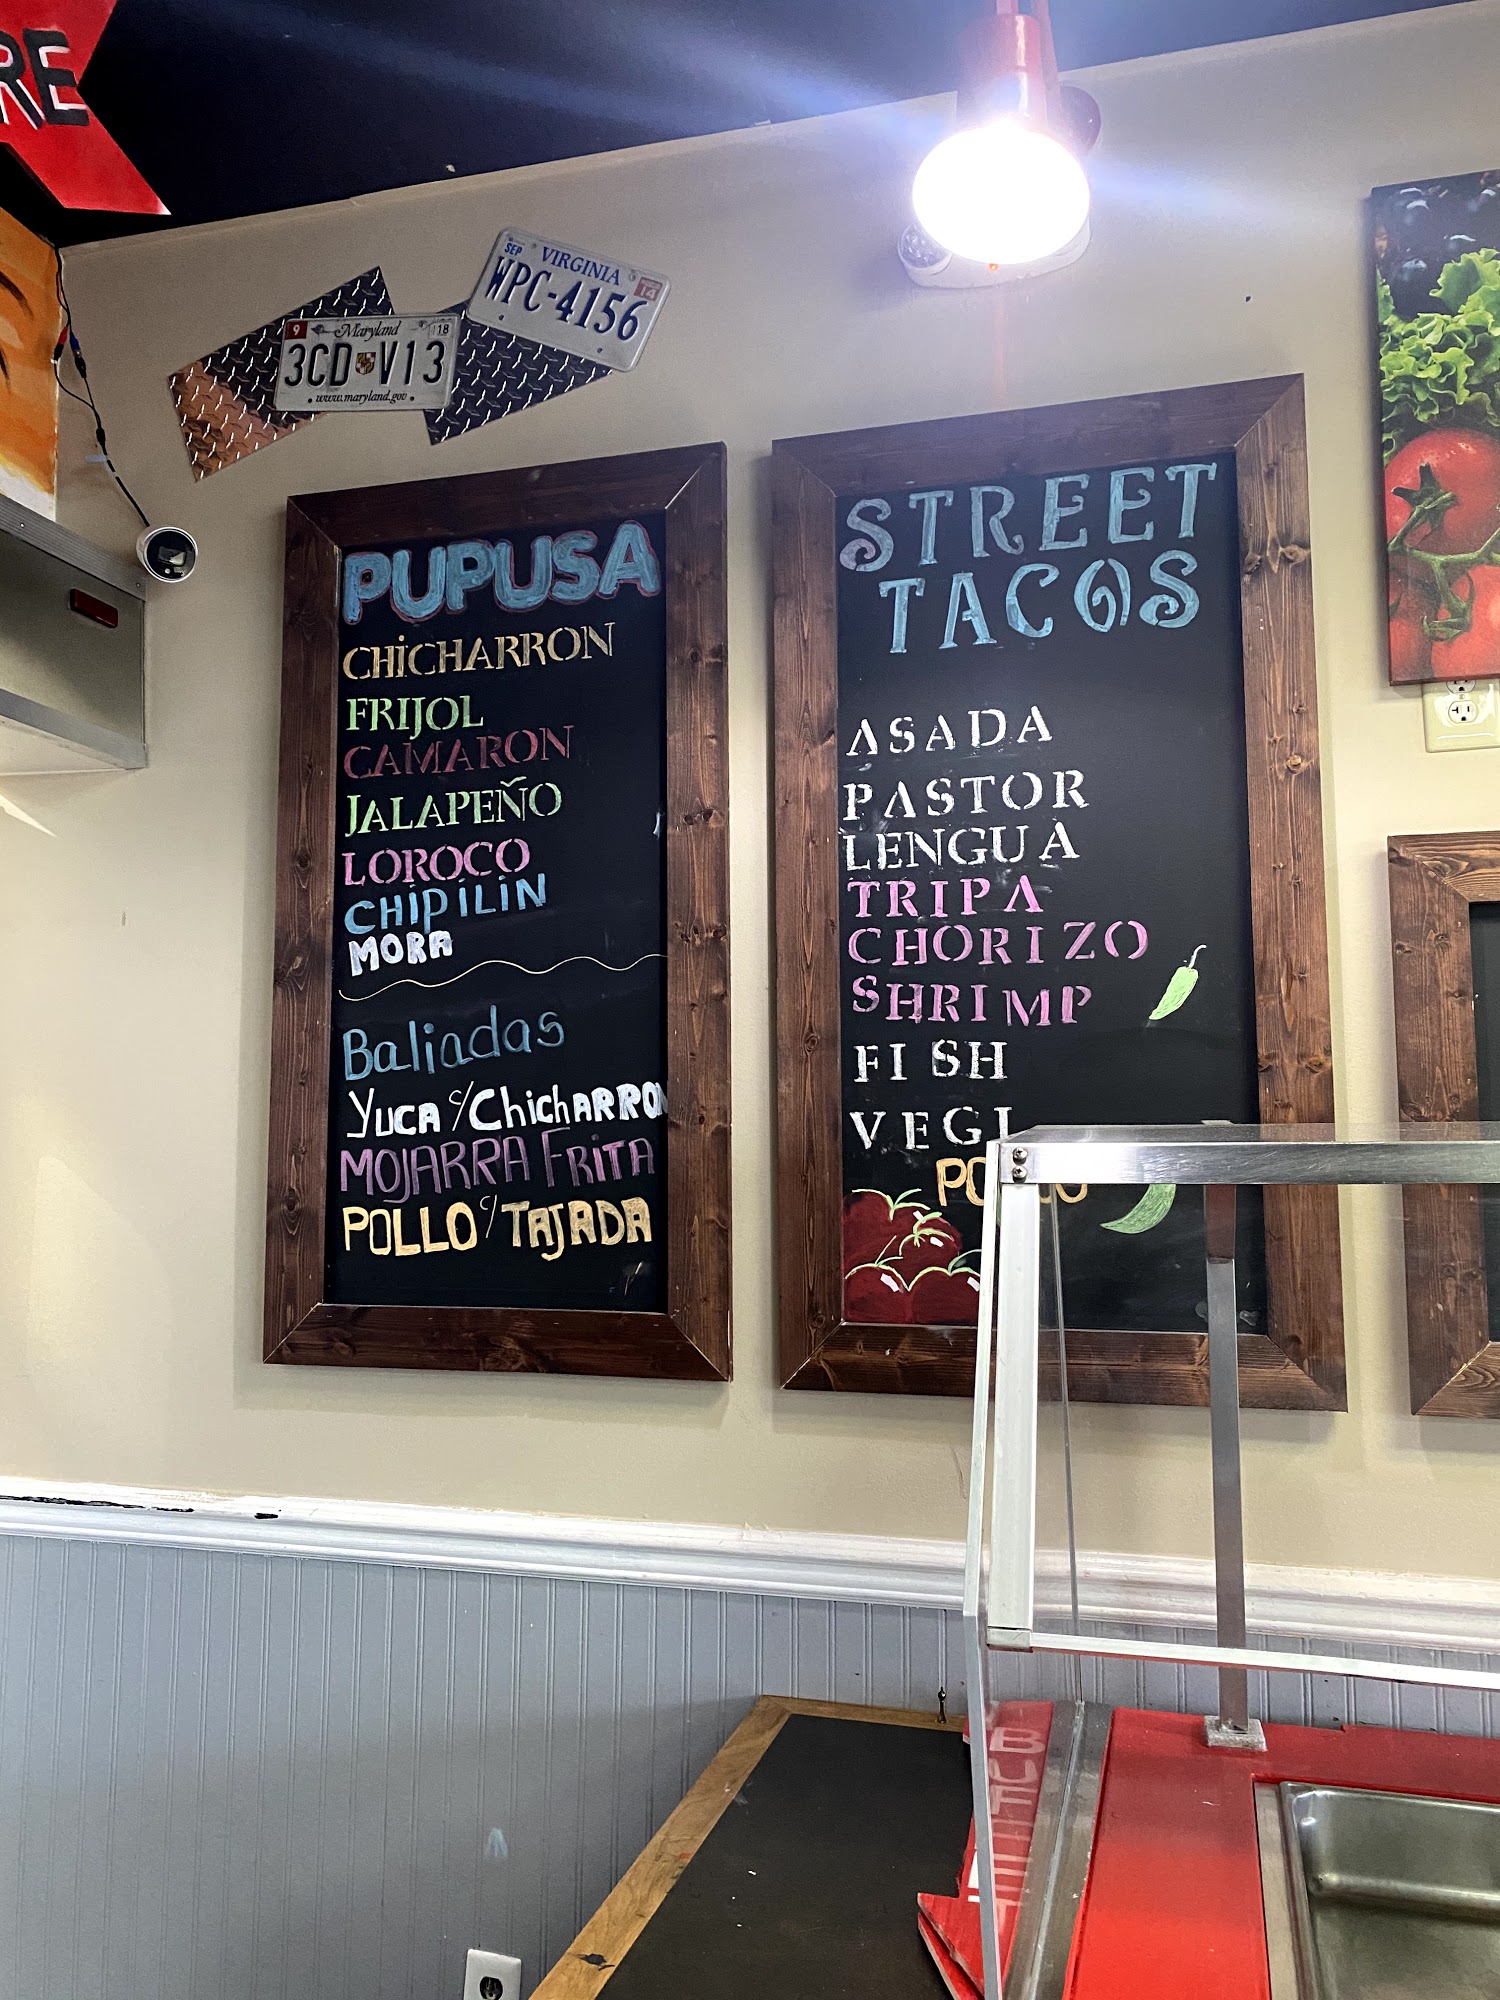 RE
SEP VIRGINIA 14
WPC-4156
9 Maryland 18
3CD V13
www.maryland.gov
PUPUSA
CHiCHARRON
FRIJOL
CAMARON
JALAPEÑO
LOROCO
CHiPiLiN
MORA
Baliadas
YUCA c/ChichARRON
MOJARRA FRiTA
POLLO c/ TAJADA
STREET
TACOS
ASADA
PASTOR
LENGUA
TRIPA
CHORIZO
SHRIMP
FISH
VEGI
BUFFET